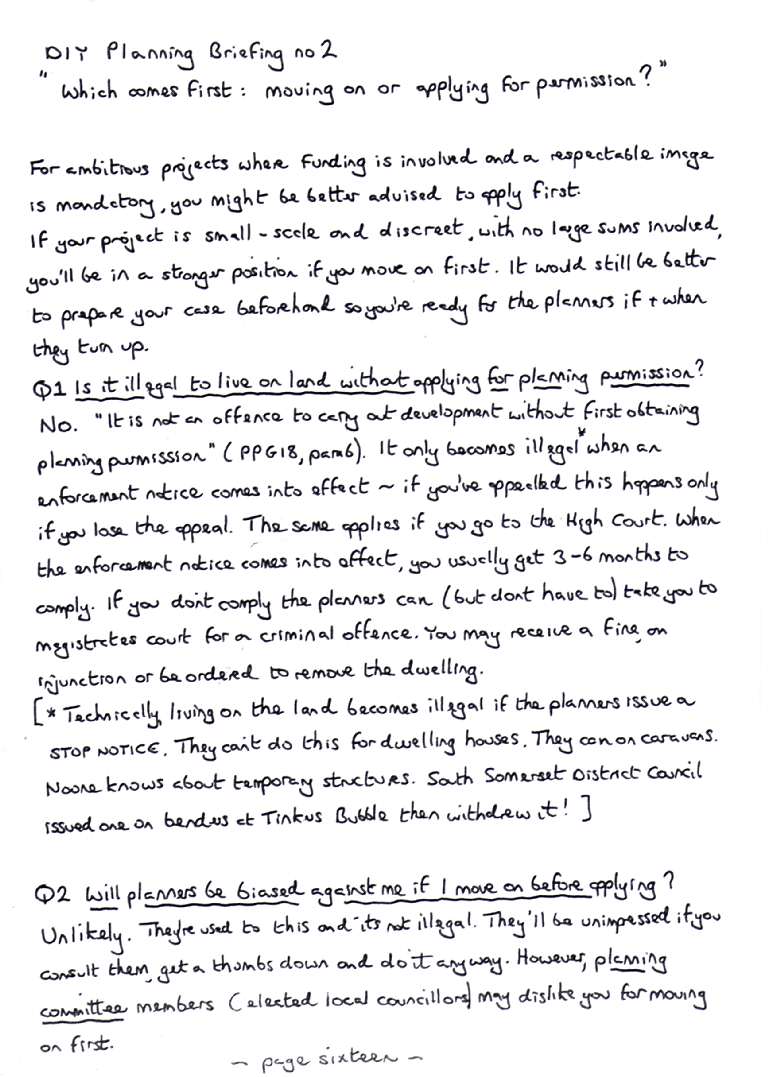 DIY Planning Briefing no 2
"Which comes first: moving on or applying for permission?"
For ambitious projects where funding is involved and a respectable image
is mandatory, you might be better advised to apply first.
If your project is small-scale and discreet, with no large sums involved,
you'll be in a stronger position if you move on first. It would still be better
to prepare your case beforehand so you're ready for the planners if + when
they turn up.
Q1 Is it illegal to live on land without applying for planning permission?
No. "It is not an offence to carry out development without first obtaining
planning permission" (PPG18, para6). It only becomes illegal* when an
enforcement notice comes into effect ~ if you've appealled this happens only
if you lose the appeal. The same applies if you go to the High Court. When
the enforcement notice comes into effect, you usually get 3-6 months to
comply. If you don't comply the planners can (but dont have to) take you to
magistrates court for a criminal offence. You may receive a fine, an
injunction or be ordered to remove the dwelling.
[* Technically, living on the land becomes illegal if the planners issue a
STOP NOTICE. They can't do this for dwelling houses. They can on caravans.
Noone knows about temporary structures. South Somerset District Council
issued one on benders at Tinkers Bubble then withdrew it! ]
Q2 Will planners be biased against me if I move on before applying?
Unlikely. They're used to this and it's not illegal. They'll be unimpressed if you
consult them, get a thumbs down and do it anyway. However, planning
committee members (elected local councillors) may dislike you for moving
on first.
~ page sixteen ~